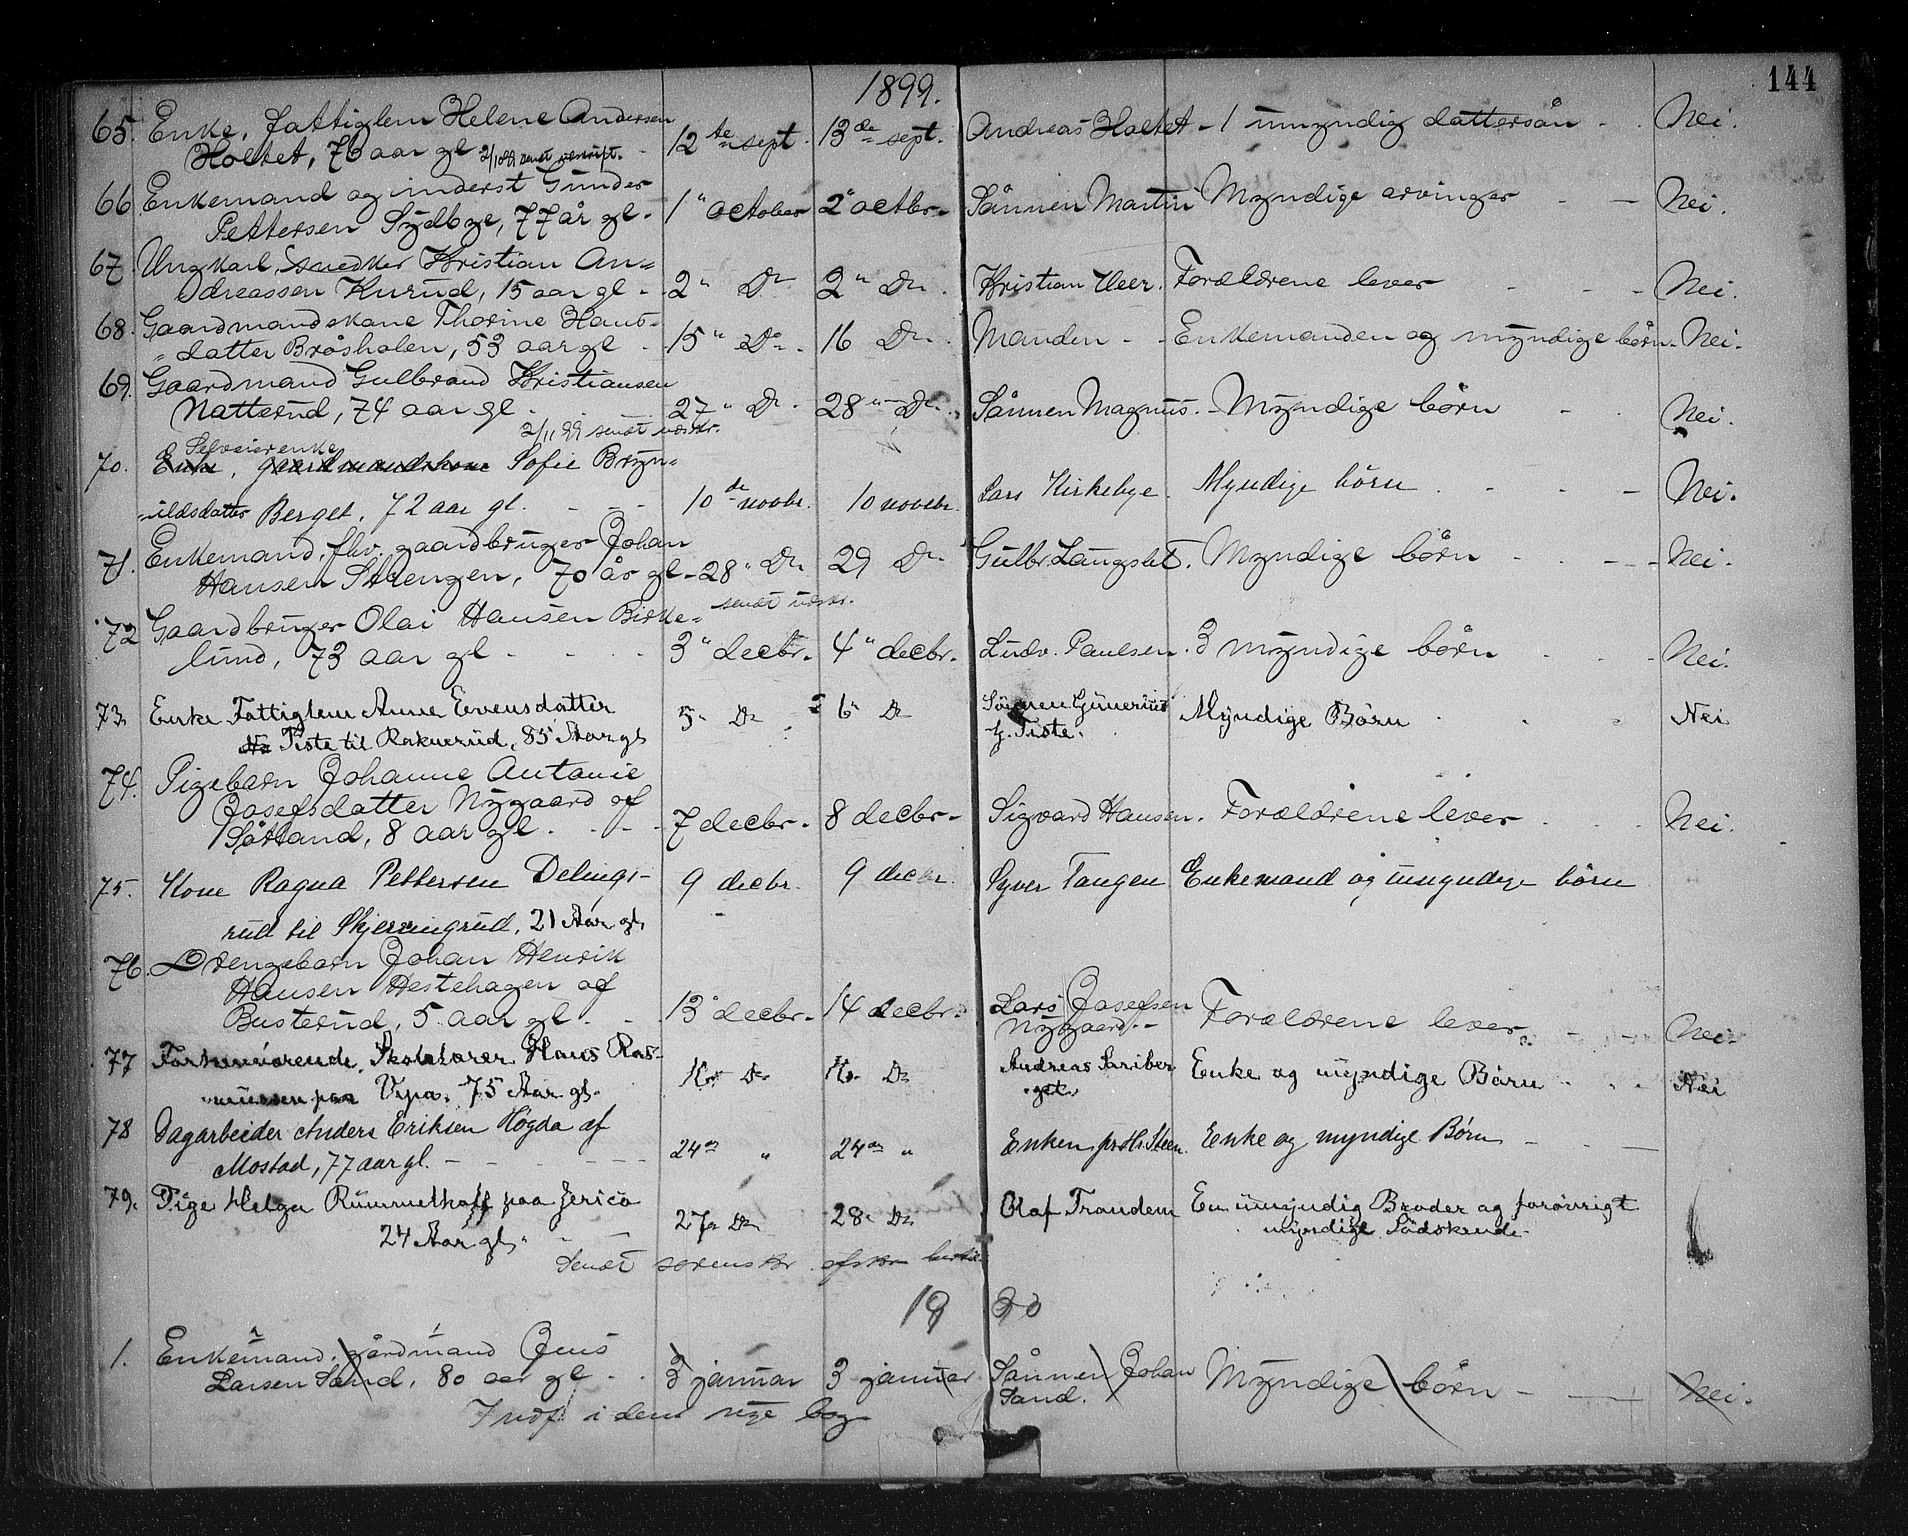 144
1899.
65. Enke, fattiglem Helene Andersen 12te sept. 13de sept. Andreas Holtet - 1 umyndig dattersån - Nei.
Holtet, 76 aar gl. 2/10 99 sendt
66 Enkemand og inderst Gunder 1" october 2" octbr. Sånnen Martin Myndige arvinger - - Nei.
Pettersen Sydbye, 77 år gl.
67. Ungkarl, snedker Kristian An= 2" Do 2" Do. Kristian Heer. Forældrene lever - - - Nei.
dreassen Kurud, 15 aar gl -
68. Gaardmandskone Thorine Hans= 15" Do. 16 Do. Manden - - Enkemanden og myndige børn - Nei.
datter Bråsholen, 53 aar gl -
69. Gaardmand Gulbrand Kristiansen 27" Do. 28" Do. Sånnen Magnus. - Myndige børn - - Nei.
Natterud, 74 aar gl.
2/11 99 sendt
Selveierenke
70. Enke, gaardmandskone Sofie Bryn=
ildsdatter Berget, 72 aar gl. - - - 10de novbr. 10 novebr. Lars Kirkebye. Myndige børn - - - Nei.
71. Enkemand, fhv. gaardbruger Johan
Hansen Sthengen, 70 år gl - 28" Do 29 Do Gulbr. Laugslet. Myndige børn - - - - Nei.
sendt
72 Gaardbruger Olai Hansen Birke=
lund, 73 aar gl - - - 3" decbr. 4" decbr. Ludv. Paulsen. 3 myndige børn - - - Nei.
73. Enke Fattiglem Anne Evensdatter 5" Do 6" Do Sönnen Gunerius Myndige Børn - - - Nei
Tiste til Raknerud, 85 Aar gl. Tiste.
74. Pigebarn Johanne Antonie
Josefsdatter Nygaard af 7 decbr. 8 decbr. Sigvard Hansen. Forældrene lever - - Nei.
Såtland, 8 aar gl. - - -
75. Kone Ragna Pettersen Delings- 9 decbr. 9 decbr. Syver Tangen Enkemand og umyndige børn
rud til Skjerringrud, 21 Aar gl.
76. Drengebarn Johan Henrik
Hansen Hestehagen af 13" decbr. 14 decbr. Lars Josefsen Forældrene lever - - - Nei.
Busterud, 5 aar gl. - - Nygaard. -
77 Forhenværende Skolelærer Hans Ras- 16. Do 16. Do Andreas Sariber Enke og myndige Børn - - - Nei
mussen paa 75 Aar gl. get.
78 Dagarbeider Anders Eriksen Högda af 24de " 24de " Enken pr. H. Steen. Enke og myndige Børn - - -
Mostad, 77 aar gl. - - - - -
79. Pige Helga Rummelhoff paa Jerico 27de Do 28. Do Olaf Trandem En umyndig Broder og forøvrigt
24 Aar gl. - - myndige Södskende -
Sendt sorenskr. afskr.
1900
1. Enkemand, gårdmand Jens
Larsen Sand, 80 aar gl. - - 3 januar 3 januar Sånnen Johan Myndige børn - - - Nei.
Sand.
Indf. i den nye bog